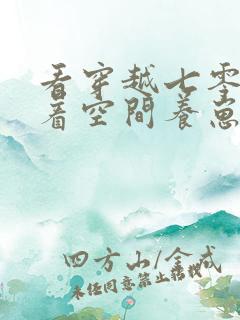 看穿越七零
着空間養崽
四方山/金戒
未经同意禁止转载